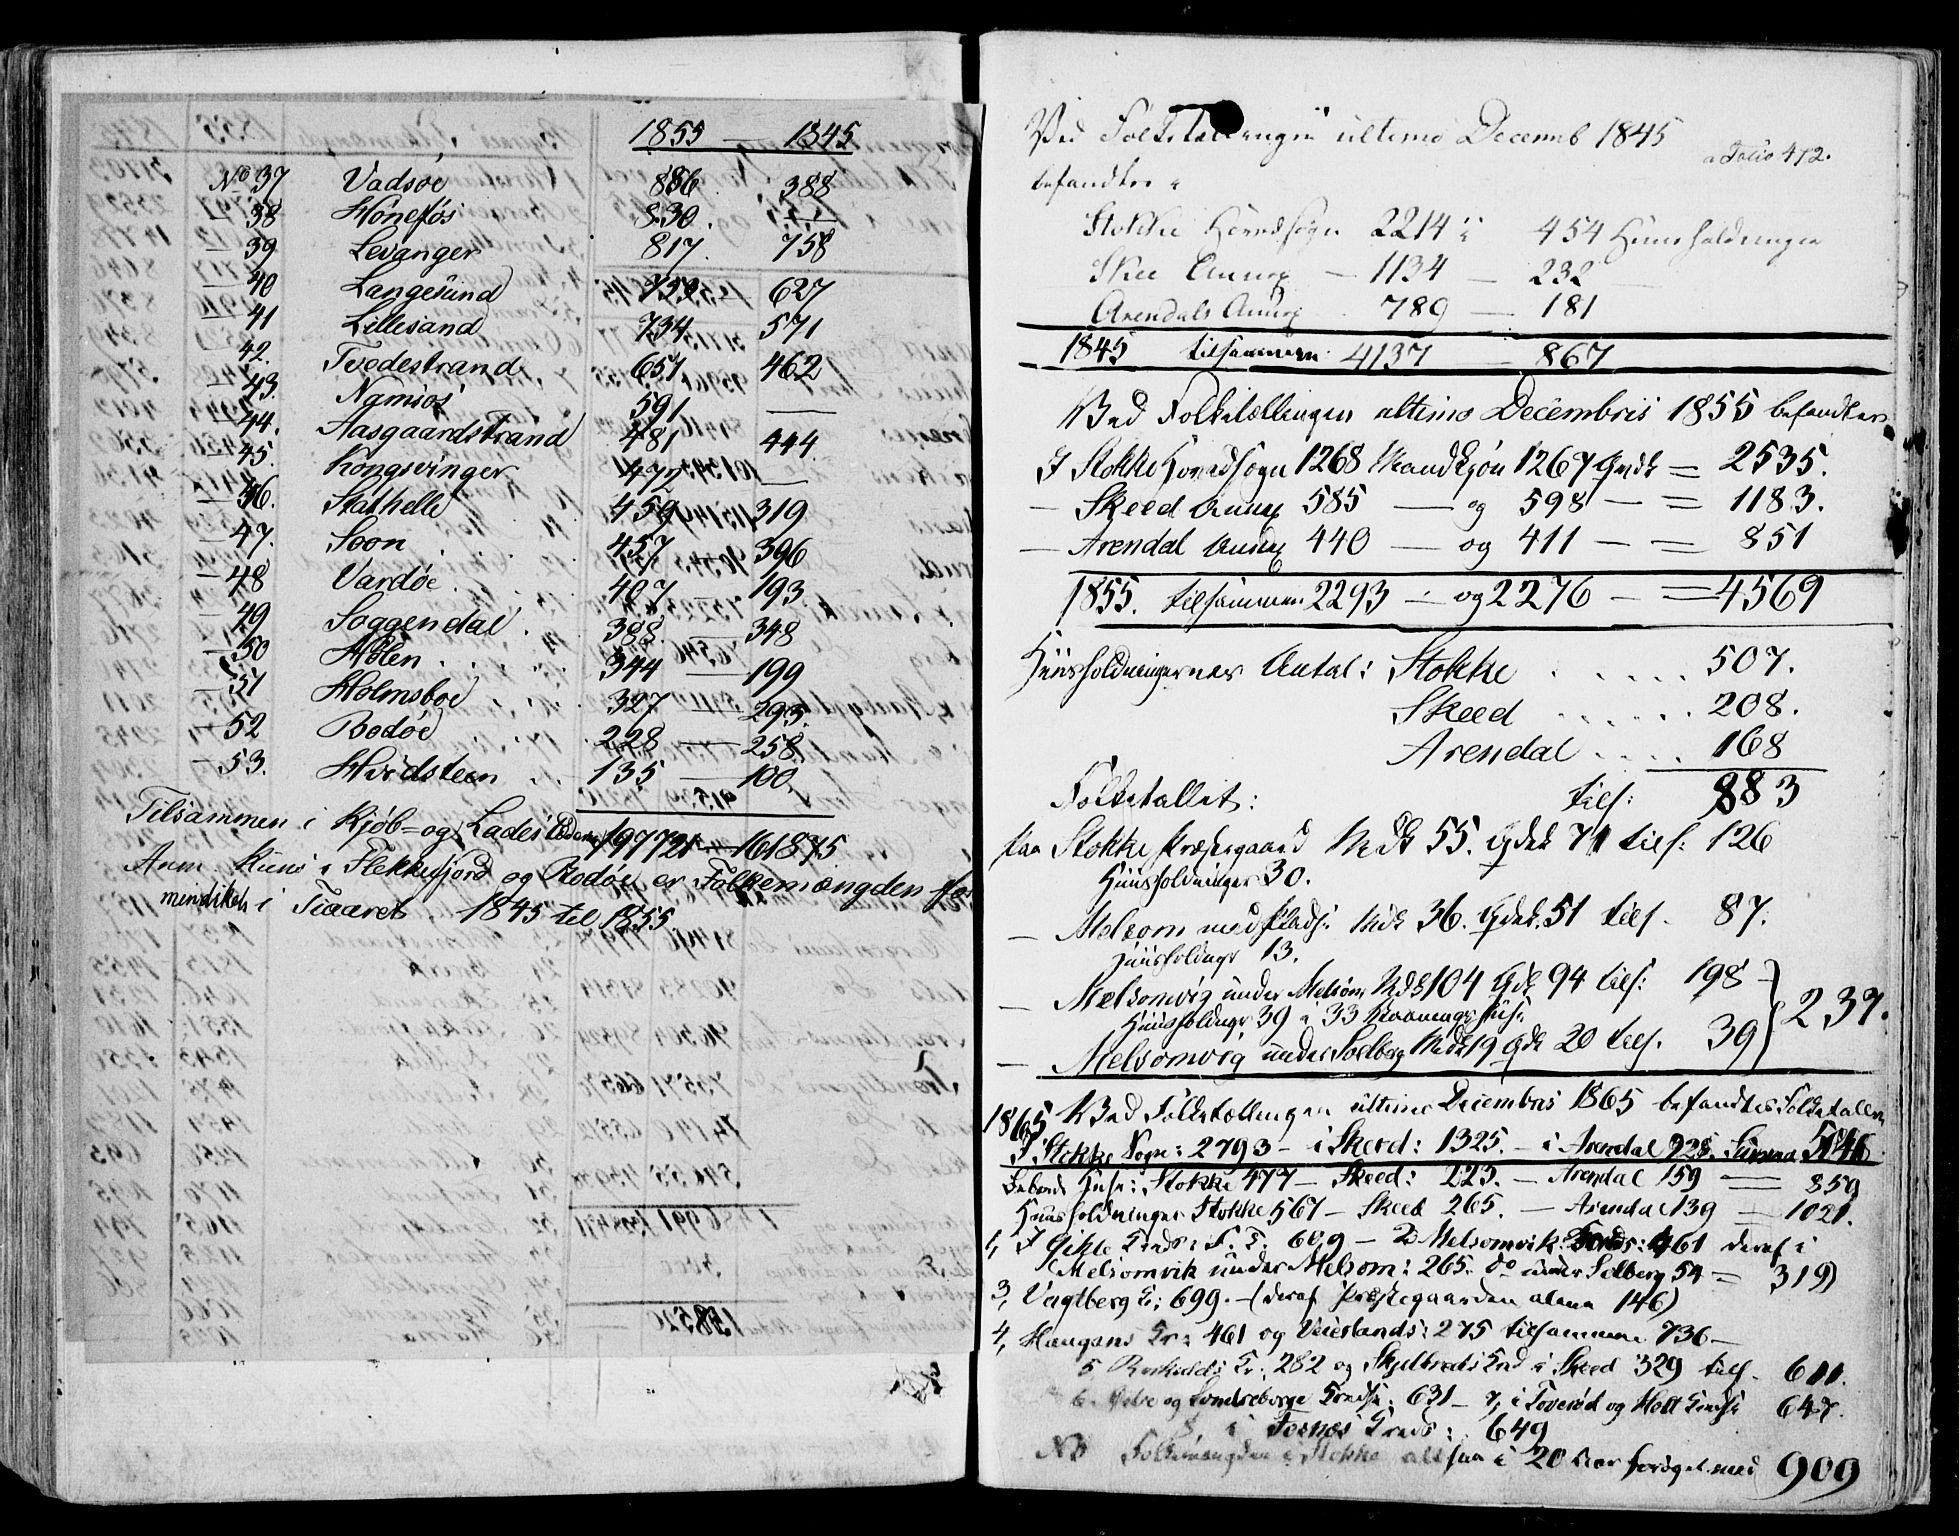 1855 — 1845
No 37 Vadsøe 886 388
— 38 Hönefos 830. — " —
— 39 Levanger 817. 758
— 40 Langesund 627
— 41 Lillesand 734 571
— 42. Tvedestrand 657 462
— 43. Namsos 591 —
— 44. Aasgaardstrand 481 444
— 45. Kongsvinger 477 —
— 46. Stathelle 459 319
— 47. Soon 457 396
— 48 Vardöe 407 193
— 49 Soggendal 388. — 348
— 50 Hölen 344 — 199
— 51 Holmsboe 327 — 295.
— 52 Bodöe 228 — 258
— 53. Hvidsteen 135 — 100.
Tilsammen i Kjøb- og Ladesteder 197721 — 161875
Anm. Kuns i Flekkefjord og Bodöe er Folkemængden for
mindsket i Tiaaret 1845 til 1855
Ved Folketællingen ultimo Decemb 1845
a Folio 412.
befandtes
Stokke Hovedsogn 2214 i 454 Huusholdninger
Skee Annex — 1134 — 232
Arendals Annex 789 — 181
1845 tilsammen 4137 — 867
Ved Folketællingen ultimo Decembris 1855 befandtes
I Stokke Hovedsogn 1268 Mandkjön 1267 Qvdk = 2535.
— Skeed Annex 585 — og 598 — = 1183.
— Arendal Annex 440 — og 411 — = 851
1855. tilsammen 2293 — og 2276 — = 4569
Huusholdningernes Antal: Stokke 507.
Skeed 208.
Arendal 168
Folketallet: tils: 883
paa Stokke Præstegaard Mdk 55. Qvdk 71 tils: 126
Huusholdninger 30.
— Melsom med Plads: Mdk 36. Qvdk. 51 tils. 87.
Huusholdngr 13.
— Melsomvig under Melsom Mdk 104 Qvdk 94 tils: 198
Huusholdngr 39 i 33
237.
— Melsomvig under Solberg Mdk 19 Qvdk 20 tils. 39
1865 Ved Folketællingen ultimo Decembris 1865 befandtes Folketallet
I Stokke Sogn: 2793 — i Skeed: 1325. — i Arendal 928. Summa 5046
Huse: Stokke 477 — Skeed: 223. — Arendal 159 = 859
Huusholdninger Stokke 567 — Skeed 265. — Arendal 139 = 1021.
1, I 609 — 2 Melsomvik: 461 deraf i
Melsomvik under Melsom: 265. do under Solberg 54 = 319)
3, Vegtberg 699. — (deraf Præstegaarden alene 146)
4, Haugans Kr: 461 og Veierlands: 275 tilsammen 736 —
5 Kr. 282 og i Skeed 329 tils. 611.
6. og Sondreborge 631 — 7, i Toverød og Holt 647.
8. i Fernes 649
NB Folkemængden i Stokke altsaa i 20 Aar foröget med 909